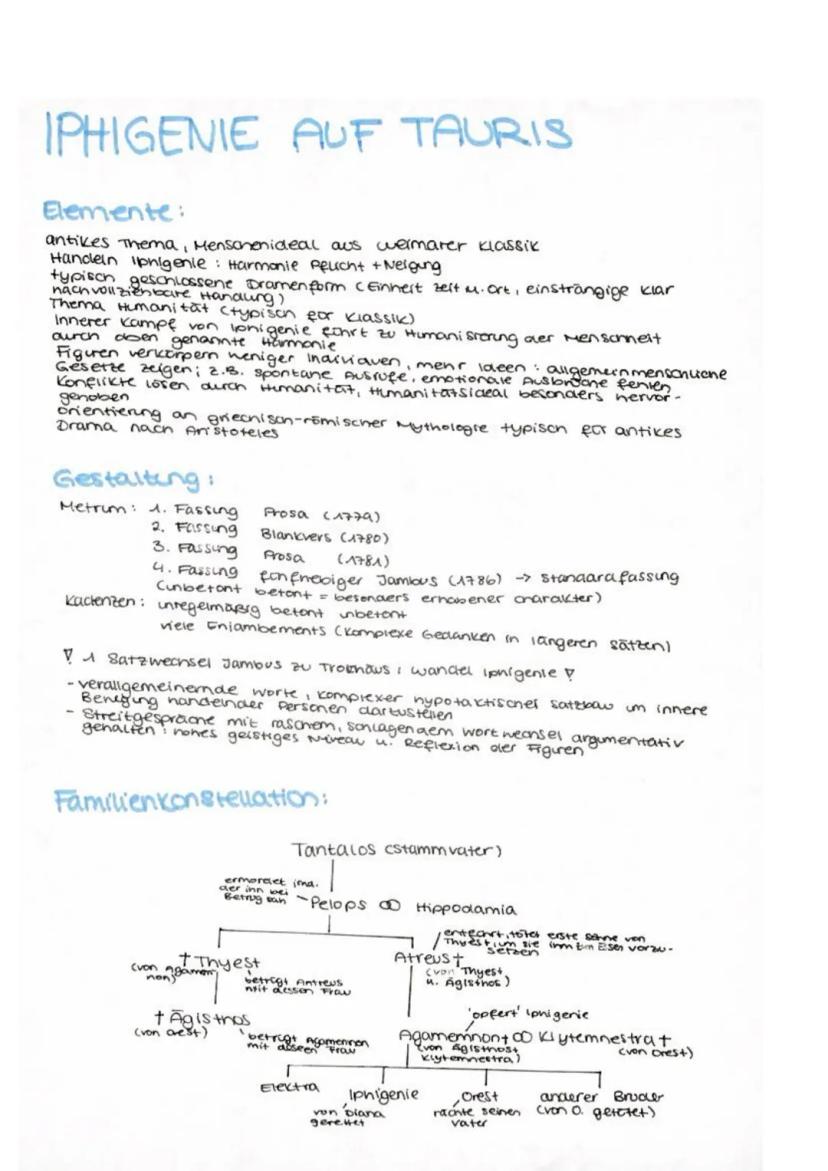 IPHIGENIE AUF TAURIS
Elemente:
antikes Thema, Menschenideal aus weimarer Klassik
Handeln Iphigenie: Harmonie Pflicht + Neigung
typisch geschlossene Dramenform (Einheit Zeit u. Ort, einsträngige klar
nachvollziehbare Handlung)
Thema Humanität (typisch für Klassik)
Innerer Kampf von Iphigenie führt zu Humanisierung der Menschheit
durch oben genannte Harmonie
Figuren verkörpern weniger Individuen, mehr Ideen: allgemeinmenschliche
Gesetze zeigen; z.B. spontane Ausrufe, emotionale Ausbrüche fehlen
Konflikte lösen durch Humanität, Humanitätsideal besonders hervor-
gehoben
Orientierung an griechisch-römischer Mythologie typisch für antikes
Drama nach Aristoteles
Gestaltung:
Metrum: 1. Fassung Prosa (1779)
2. Fassung Blankvers (1780)
3. Fassung Prosa (1781)
4. Fassung fünfhebiger Jambus (1786) → Standardfassung
(unbetont betont = besonders erhabener Charakter)
Kadenzen: unregelmäßig betont unbetont
viele Enjambements (komplexe Gedanken in längeren Sätzen)
1 Satzwechsel Jambus zu Trochäus: Wandel Iphigenie
- verallgemeinernde Worte, komplexer hypotaktischer Satzbau um innere
Bewegung handelnder Personen darzustellen
- Streitgespräche mit raschem, schlagendem Wortwechsel argumentativ
gehalten: hohes geistiges Niveau u. Reflexion der Figuren
Familienkonstellation:
Tantalos (Stammvater)
ermordet jmd.
der ihn bei
Betrug sah
Pelops ∞ Hippodamia
entfernt, tötet erste Söhne von
Thyest um sie ihm zum Essen vorzu-
setzen
† Thyest
(von Agamem
non)
betrügt Amtreus
mit dessen Frau
Atreus †
(von Thyest
u. Ägisthos)
† Ägisthos
(von Orest)
betrügt Agamemnon
mit dessen Frau
'opfert' Iphigenie
Agamemnon † ∞ Klytemnestra †
(von Ägisthos +
Klytemnestra)
(von Orest)
Elektra
Iphigenie
von Diana
gerettet
Orest
rächte seinen
Vater
anderer Bruder
(von O. getötet)